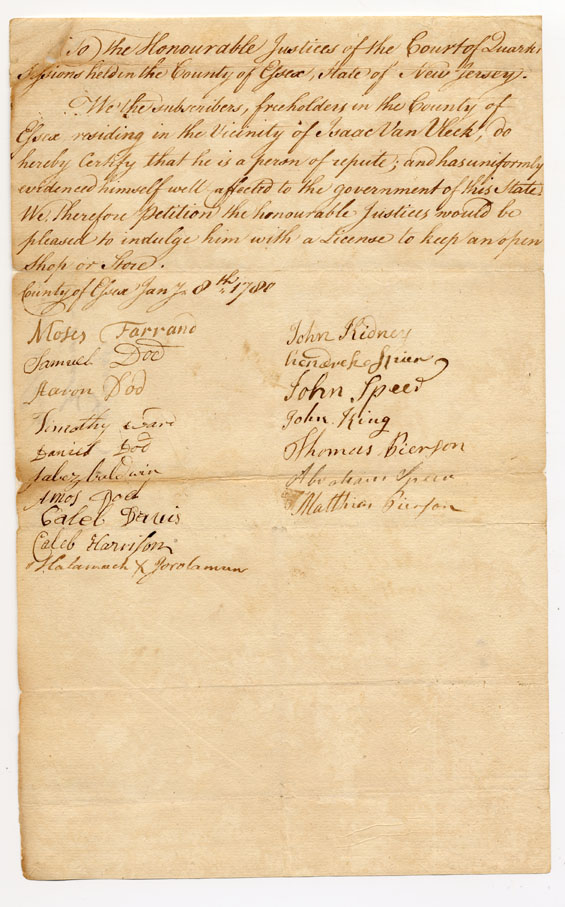 To the Honourable Justices of the Court of Quarter
Sessions held in the County of Essex, State of New Jersey.
We the subscribers, freeholders in the County of
Essex residing in the Vicinity of Isaac Van Vleck, do
hereby Certify that he is a person of repute; and has uniformly
evidenced himself well affected to the government of this State.
We Therefore Petition the honourable Justices would be
pleased to indulge him with a License to keep an open
Shop or Store.
County of Essex Jany 8th 1780
Moses Farrand
Samuel Dod
Aaron Dod
Timothy Ward
Daniel Dod
Jabez Baldwin
Amos Dod
Caleb Davis
Caleb Harrison
X Jorolamun
John Kidney
Hendrek Spier
John Speer
John King
Thomas Pierson
Abraham Speer
Matthias Pierson